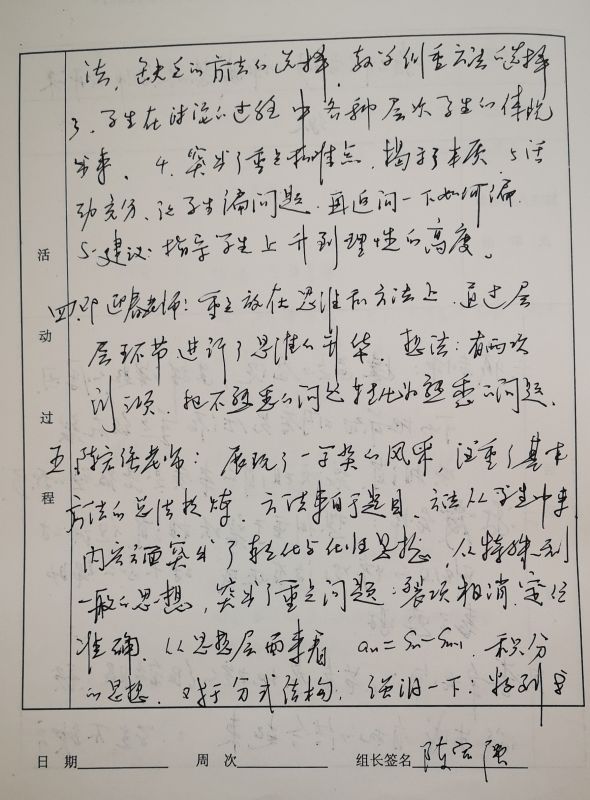 法，缺乏的方法的选择，教学侧重方法的选择
3、学生在讨论的过程中各种层次学生的体现
出来。4、突出了重点和难点，揭示了本质，5活
动充分、让学生编问题，再追问一下如何编
5、建议：指导学生上升到理性的高度。
四、 迎春老师：重点放在思维和方法上，通过层
层环节进行了思维的升华。想法：有两次
列项，把不熟悉的问题转化为熟悉的问题。
五、陈宏强老师：展现了一等奖的风采，注重了基本
方法的总结提炼，方法来自于题目，方法从学生中来
内容方面突出了转化与化归思想，从特殊到
一般的思想，突出了重点问题：裂项相消，定位
准确，从思想层面来看 an=Sn-Sn-1，积分
的思想，对于分式结构，强调一下：数列
活动过程
日期 周次 组长签名 陈宏强